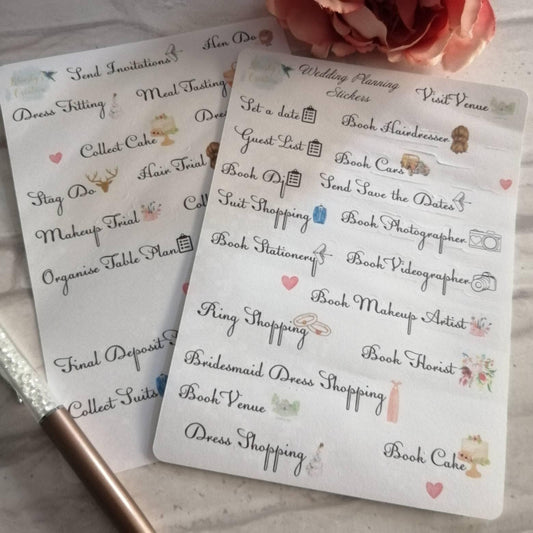 Hen Do
Send Invitations
Meal Tasting
Dress Fitting
Collect Cake
Hair Trial
Stag Do
Makeup Trial
Organise Table Plan
Final Deposit
Collect Suits
Wedding Planning
Stickers
Visit Venue
Set a date
Book Hairdresser
Guest List
Book Cars
Book Dj
Send Save the Dates
Suit Shopping
Book Photographer
Book Stationery
Book Videographer
Book Makeup Artist
Ring Shopping
Book Florist
Bridesmaid Dress Shopping
Book Venue
Dress Shopping
Book Cake